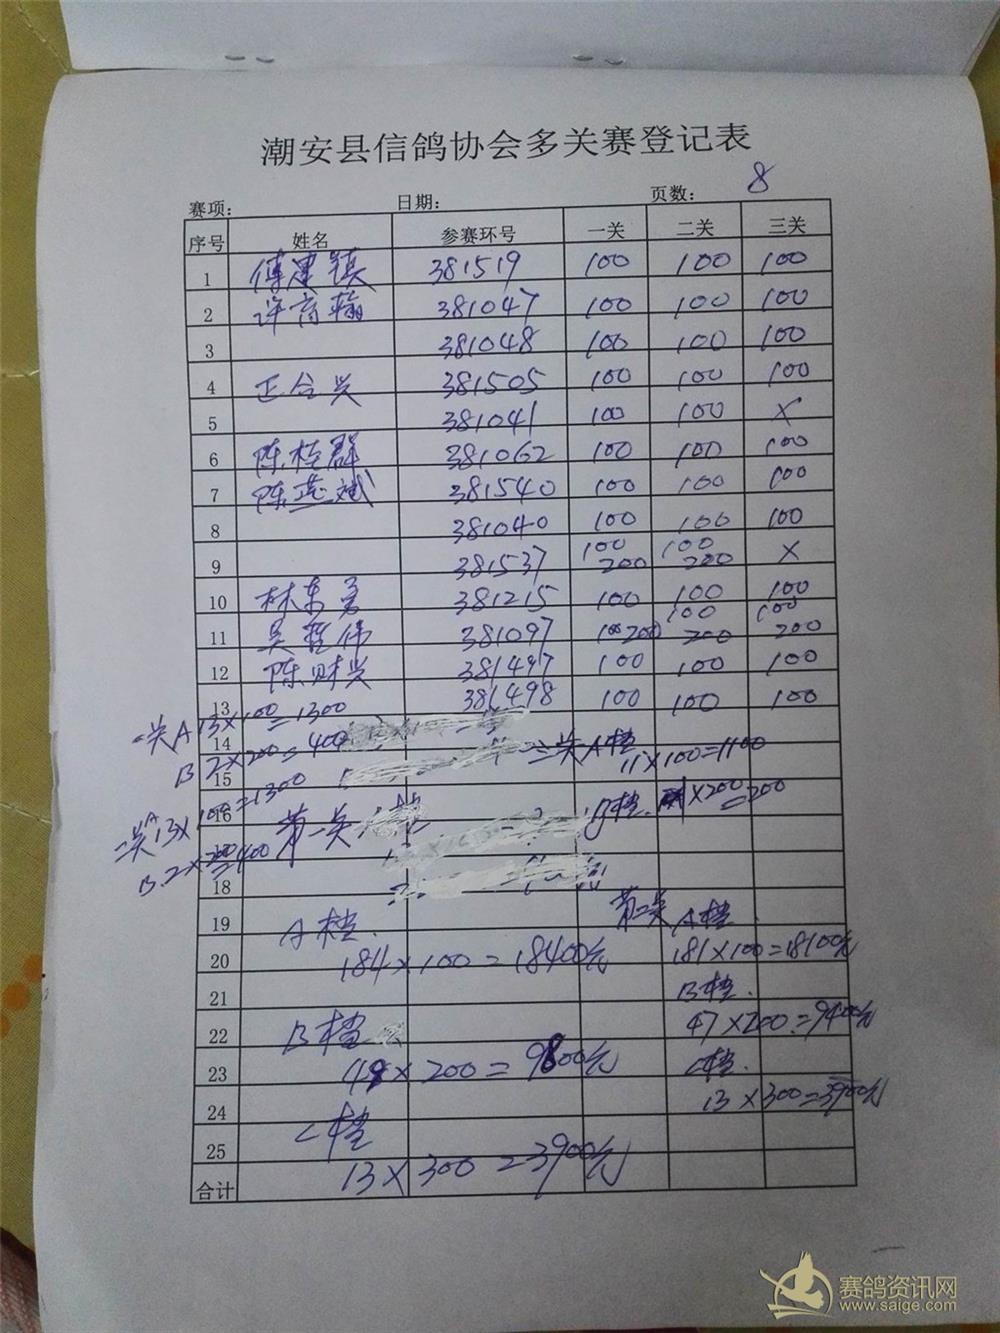 潮安县信鸽协会多关赛登记表
赛项： 日期： 页数： 8
序号 姓名 参赛环号 一关 二关 三关
1 傅建镇 381519 100 100 100
2 许育翰 381047 100 100 100
3 381048 100 100 100
4 正合兴 381505 100 100 100
5 381041 100 100 X
6 陈桂群 381062 100 100 100
7 陈燕斌 381540 100 100 100
8 381040 100 100 100
9 381537 100 200 100 200 X
10 林东勇 381215 100 100 100
11 吴哲伟 381097 100 200 100 200 100 200
12 陈财兴 381497 100 100 100
13 381498 100 100 100
一关A 13×100=1300
14
B 2×200=400
三关A档
15
11×100=1100
二关A 13×100=1300
16
第一关 B档 ×200=200
B.2×200=400
18
19 A档. 第二关 A档.
20 184×100=18400元 181×100=18100元
21 B档.
22 B档 47×200=9400元
23 ×200=9800元 C档.
24 13×300=3900元
C档
25
13×300=3900元
合计
赛鸽资讯网
www.saige.com